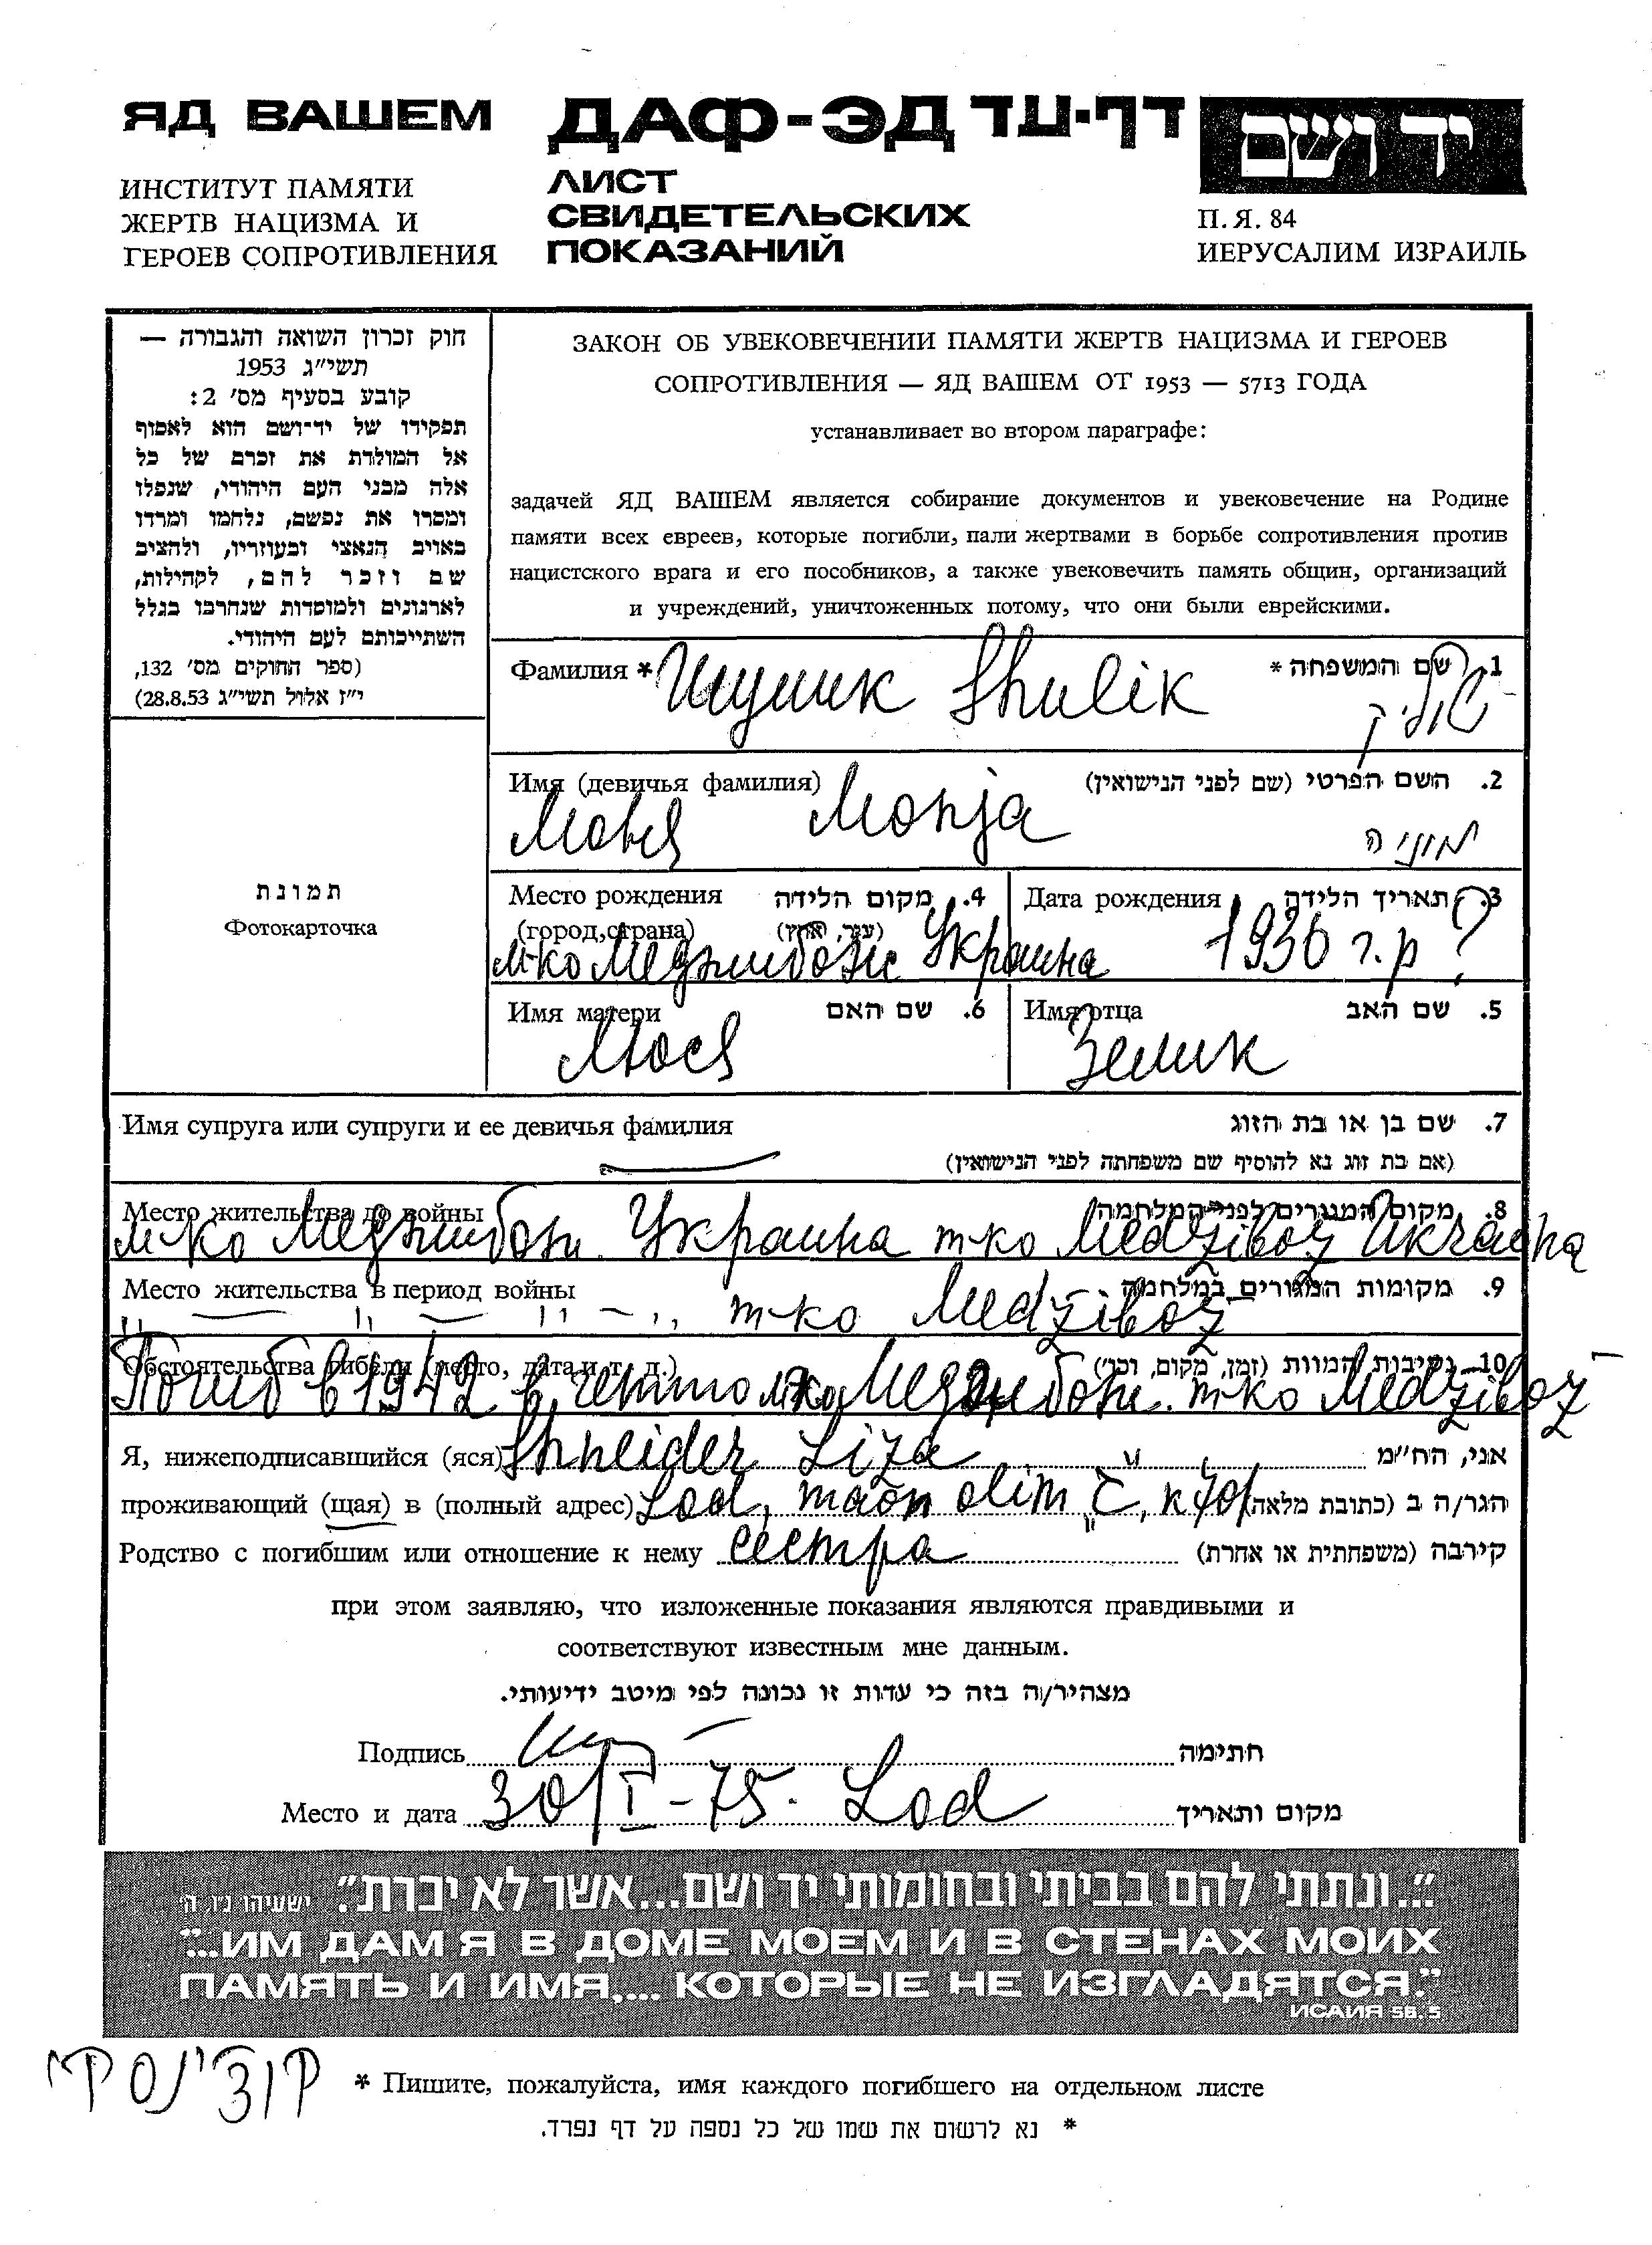 ЯД ВАШЕМ
ИНСТИТУТ ПАМЯТИ
ЖЕРТВ НАЦИЗМА И
ГЕРОЕВ СОПРОТИВЛЕНИЯ
ДАФ-ЭД דף-עד
ЛИСТ
СВИДЕТЕЛЬСКИХ
ПОКАЗАНИЙ
יד ושם
П. Я. 84
ИЕРУСАЛИМ ИЗРАИЛЬ
חוק זכרון השואה והגבורה —
תשי״ג 1953
קובע בסעיף מס׳ 2:
תפקידו של יד־ושם הוא לאסוף
אל המולדת את זכרם של כל
אלה מבני העם היהודי, שנפלו
ומסרו את נפשם, נלחמו ומרדו
באויב הנאצי ובעוזריו, ולהציב
שם וזכר להם, לקהילות,
לארגונים ולמוסדות שנחרבו בגלל
השתייכותם לעם היהודי.
(ספר החוקים מס׳ 132,
י״ז אלול תשי״ג 28.8.53)
תמונת
Фотокарточка
ЗАКОН ОБ УВЕКОВЕЧЕНИИ ПАМЯТИ ЖЕРТВ НАЦИЗМА И ГЕРОЕВ
СОПРОТИВЛЕНИЯ — ЯД ВАШЕМ ОТ 1953 — 5713 ГОДА
устанавливает во втором параграфе:
задачей ЯД ВАШЕМ является собирание документов и увековечение на Родине
памяти всех евреев, которые погибли, пали жертвами в борьбе сопротивления против
нацистского врага и его пособников, а также увековечить память общин, организаций
и учреждений, уничтоженных потому, что они были еврейскими.
Фамилия * Шулик Shulik 1. שם המשפחה *
שוליק
Имя (девичья фамилия) 2. השם הפרטי (שם לפני הנישואין)
Моня Monja מוניה
Место рождения 4. מקום הלידה
(город, страна) (עיר, ארץ)
м-ко Меджибоже Украина
Дата рождения 3. תאריך הלידה
1936 г.р ?
Имя матери 6. שם האם
Мося
Имя отца 5. שם האב
Зелик
Имя супруга или супруги и ее девичья фамилия 7. שם בן או בת הזוג
(אם בת זוג נא להוסיף שם משפחתה לפני הנישואין)
Место жительства до войны 8. מקום המגורים לפני המלחמה
м-ко Меджибоже Украина m-ko Medziboz Ukraina
Место жительства в период войны 9. מקומות המגורים במלחמה
,, — ,, — ,, — ,, m-ko Medziboz
Обстоятельства гибели (место, дата и т. д.) 10. נסיבות המוות (זמן, מקום, וכו׳)
Погиб в 1942 в гетто м-ко Меджибоже. m-ko Medziboz
Я, нижеподписавшийся (яся) Shneider Liza אני, הח״מ
проживающий (щая) в (полный адрес) Lod, maon olim "Č", к 701 הגר/ה ב (כתובת מלאה)
Родство с погибшим или отношение к нему сестра קירבה (משפחתית או אחרת)
при этом заявляю, что изложенные показания являются правдивыми и
соответствуют известным мне данным.
מצהיר/ה בזה כי עדות זו נכונה לפי מיטב ידיעותי.
Подпись חתימה
Место и дата 30/I-75. Lod מקום ותאריך
"...ונתתי להם בביתי ובחומותי יד ושם...אשר לא יכרת." ישעיהו נ״ו ה׳
"...ИМ ДАМ Я В ДОМЕ МОЕМ И В СТЕНАХ МОИХ
ПАМЯТЬ И ИМЯ,... КОТОРЫЕ НЕ ИЗГЛАДЯТСЯ."
ИСАИЯ 56.5
קוצ׳ינסקי
* Пишите, пожалуйста, имя каждого погибшего на отдельном листе
* נא לרשום את שמו של כל נספה על דף נפרד.